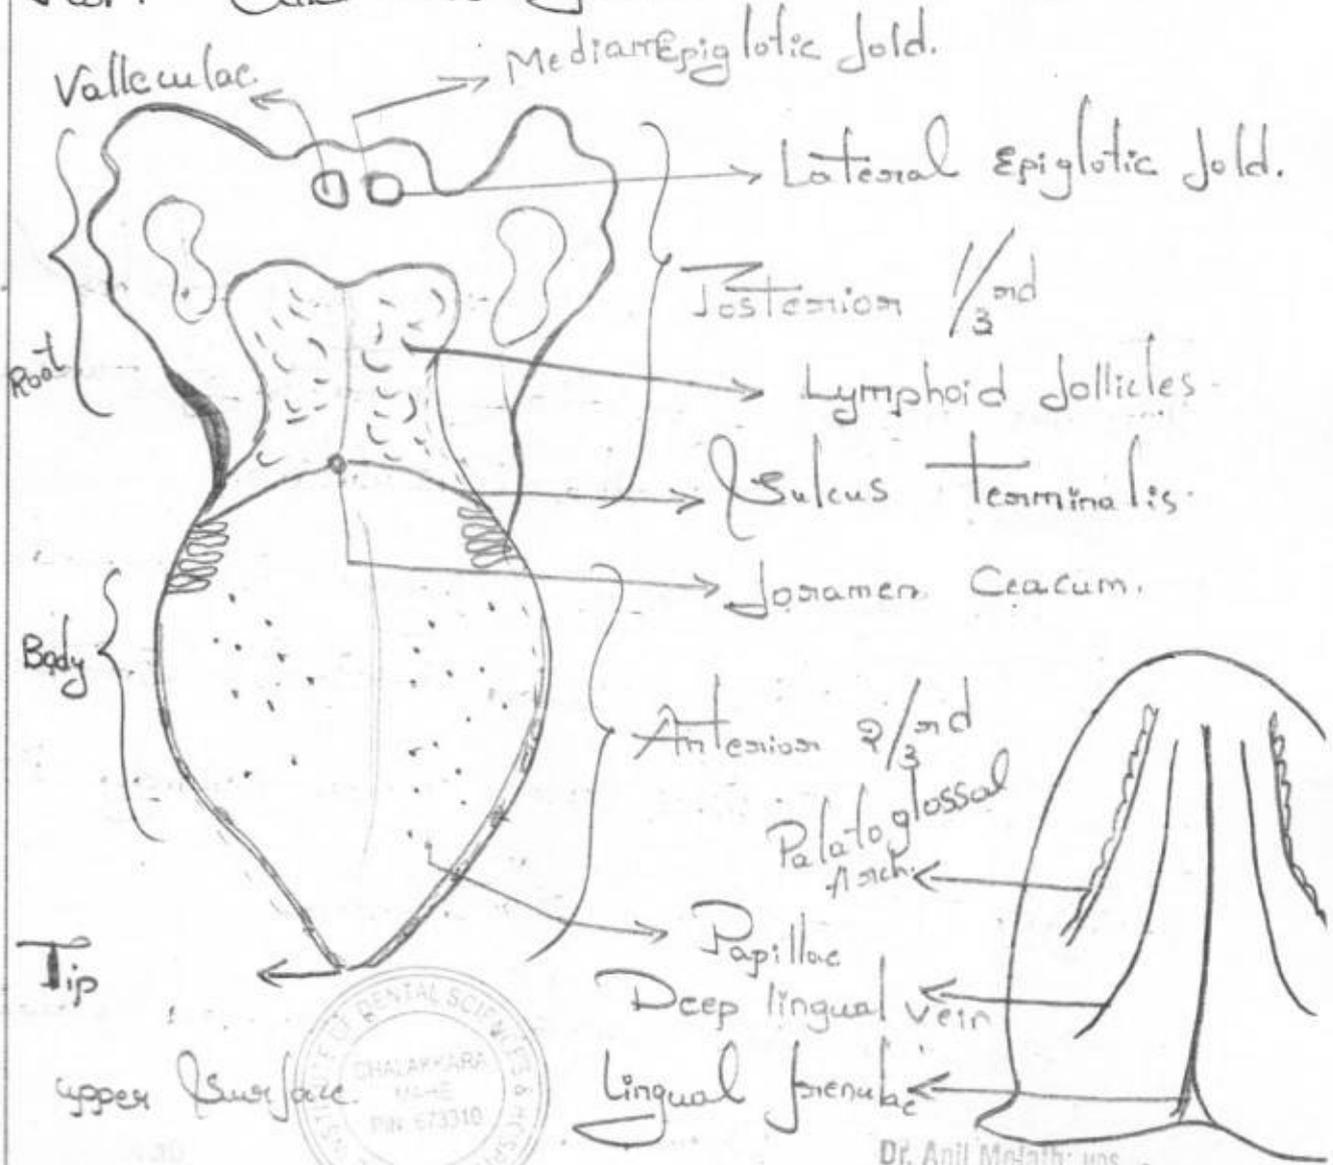 Valleculae
Median Epiglotic fold.
Lateral Epiglotic fold.
Posterior 1/3rd
Root
Lymphoid follicles
Sulcus terminalis.
Foramen Ceacum.
Body
Anterior 2/3rd
Palatoglossal
Arch.
Papillae
Tip
Deep lingual vein
Lingual frenulae
upper Surface.
OF DENTAL SCIENCES &
CHALAKKARA
MAHE
PIN 673310
Dr. Anil